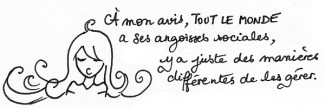 À mon avis, TOUT LE MONDE
a ses angoisses sociales,
y a juste des manières
différentes de les gérer.